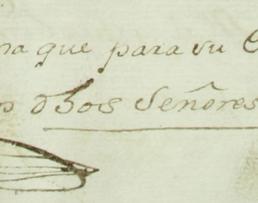 na que para su
dhos Señores